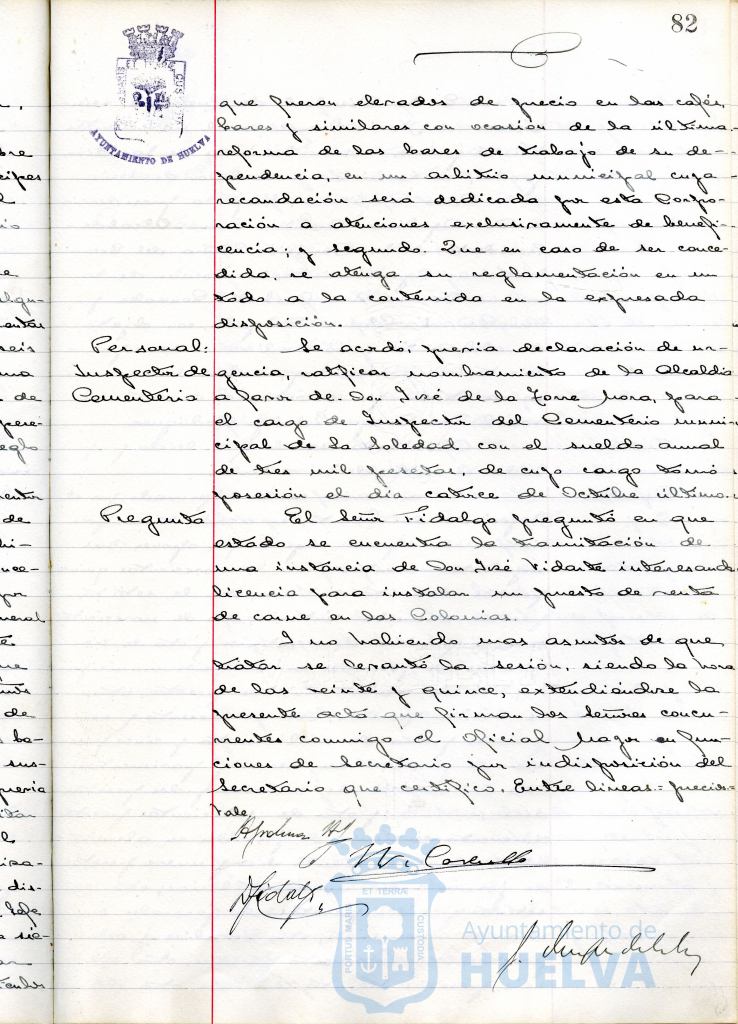 82
AYUNTAMIENTO DE HUELVA
que fueron elevados de precio en los cafés,
bares y similares con ocasión de la última
reforma de las bases de trabajo de su de-
pendencia, en un arbitrio municipal cuya
recaudación será dedicada por esta Corpo-
ración a atenciones exclusivamente de benefi-
cencia; y segundo. Que en caso de ser conce-
dida, se atenga su reglamentación en un
todo a la contenida en la expresada
disposición.
Personal:
Inspector de
Cementerio
Se acordó, previa declaración de ur-
gencia, ratificar nombramiento de la Alcaldía
a favor de Don José de la Torre Mora, para
el cargo de Inspector del Cementerio muni-
cipal de la Soledad con el sueldo anual
de tres mil pesetas, de cuyo cargo tomó
posesión el día catorce de Octubre último.
Pregunta
El Señor Fidalgo preguntó en que
estado se encuentra la tramitación de
una instancia de Don José Vidarte interesando
licencia para instalar un puesto de venta
de carne en las Colonias.
Y no habiendo mas asuntos de que
tratar se levantó la sesión, siendo la hora
de las veinte y quince, extendiéndose la
presente acta que firman los Señores concu-
rrentes conmigo el Oficial Mayor en fun-
ciones de Secretario por indisposición del
Secretario que certifico. Entre lineas = precio =
Vale.
Fidalgo
PORTUS MARIS ET TERRÆ CUSTODIA
Ayuntamiento de
HUELVA